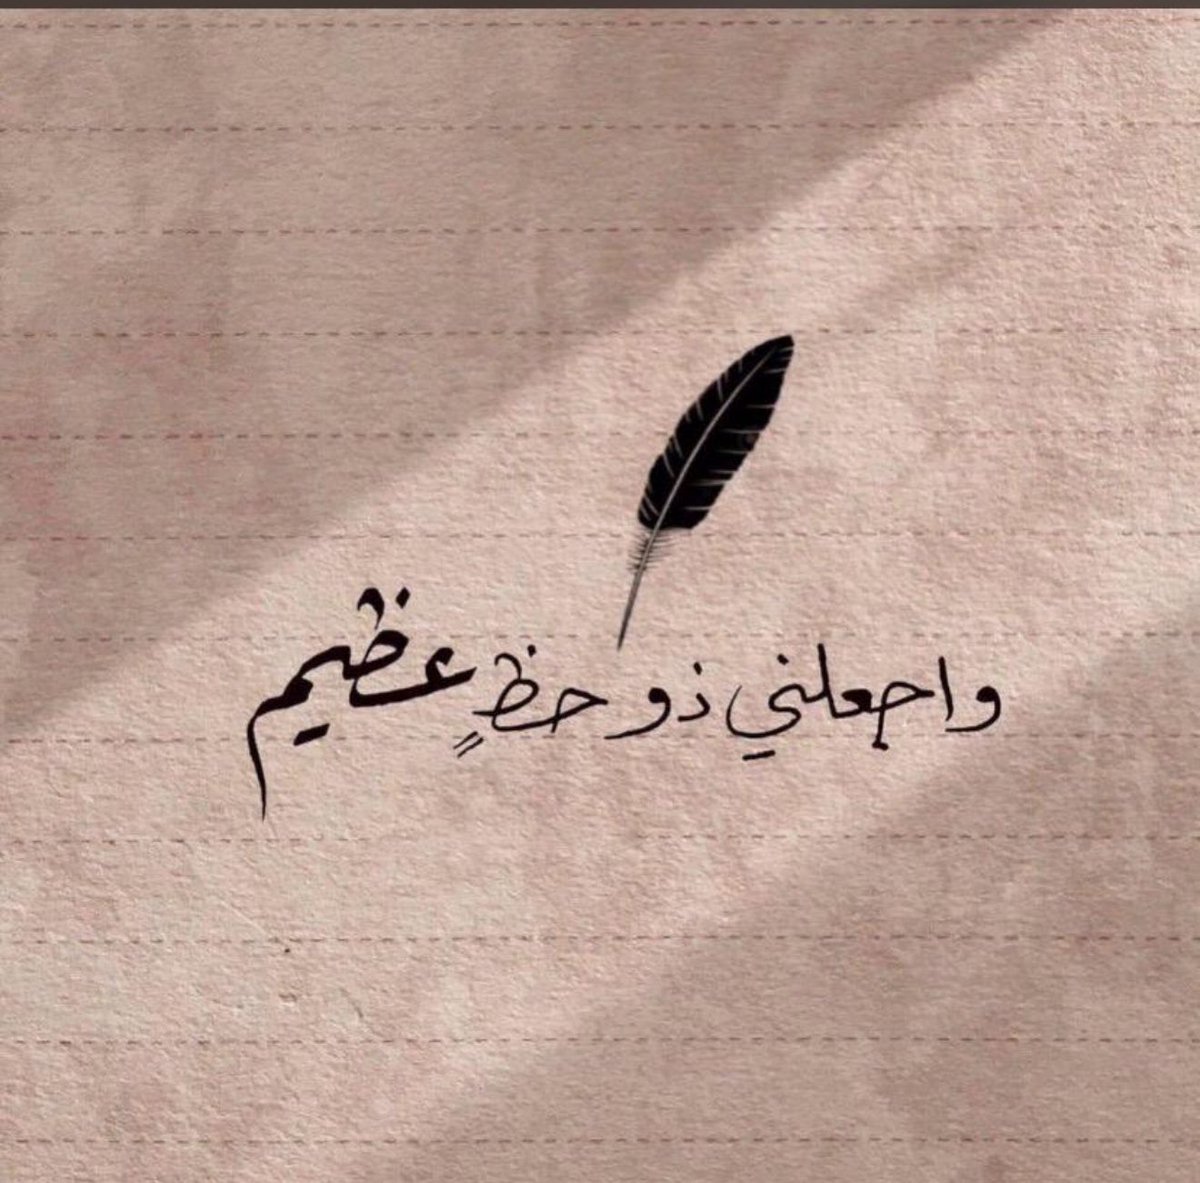 واجعلني ذو حظٍ عظيم